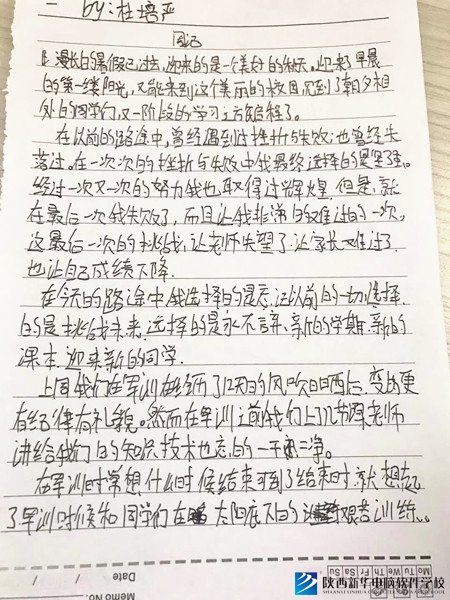 by:杜培严
周记
漫长的暑假已过去,迎来的是一个美好的秋天。迎来了早晨
的第一缕阳光,又能来到这个美丽的校园,见到了朝夕相
处的同学们,又一阶段的学习之旅启程了。
在以前的路途中,曾经遇到过挫折与失败;也曾经失
落过。在一次次的挫折与失败中我最终选择的是坚强。
经过一次又一次的努力我也取得过辉煌,但是,就
在最后一次我失败了,而且让我非常的难过的一次。
这最后一次的挑战,让老师失望了,让家长难过了,
也让自己成绩下降,
在今天的路途中我选择的是忘记以前的一切,选择
的是挑战未来,选择的是永不言弃、新的学期、新的
课本,迎来新的同学。
上周我们在军训在经历了12天的风吹日晒后,变的更
有纪律有礼貌。然而在军训之前我们上了几节课老师
讲给我们的知识、技术也忘的一干二净。
在军训时常想什么时候结束,可到了结束时,就想起
了军训时候和同学们在太阳底下的艰苦训练。
Mo Tu We Th Fr Sa Su
Date / /
Memo No.
陕西新华电脑软件学校
SHAANXI XINHUA COMPUTER SOFTWARE SCHOOL